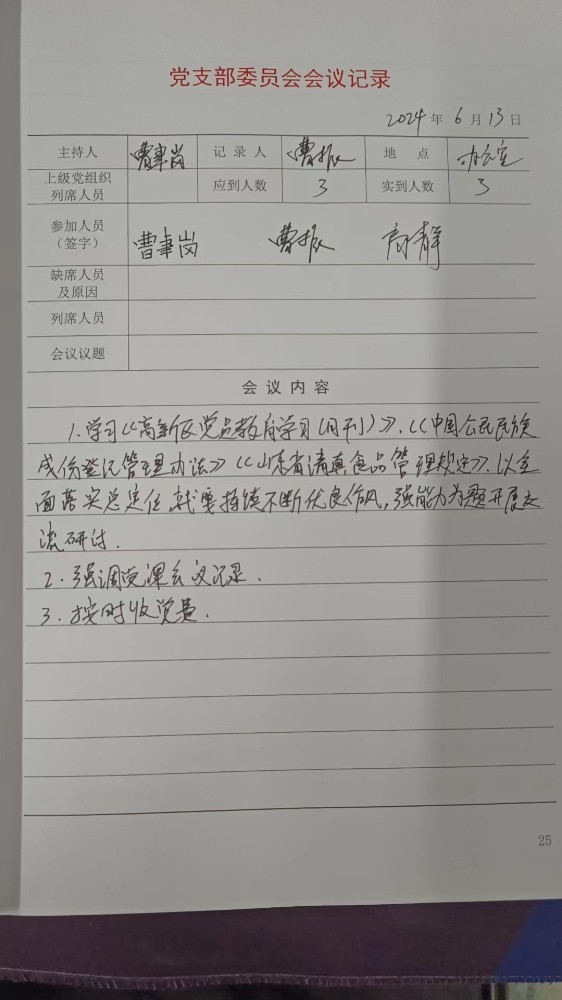 党支部委员会会议记录
2024 年 6 月 13 日
主持人 曹聿岗 记录人 曹振 地点 办公室
上级党组织列席人员 应到人数 3 实到人数 3
参加人员（签字） 曹聿岗 曹振 高静
缺席人员及原因
列席人员
会议议题
会议内容
1.学习《高新区党员教育学习(月刊)》.《中国公民民族
成份登记管理办法》《山东省清真食品管理规定》.以全
面落实总定位,就要持续不断优良作风,强能力为题开展交
流研讨.
2.强调党课会议记录.
3.按时收党费.
25